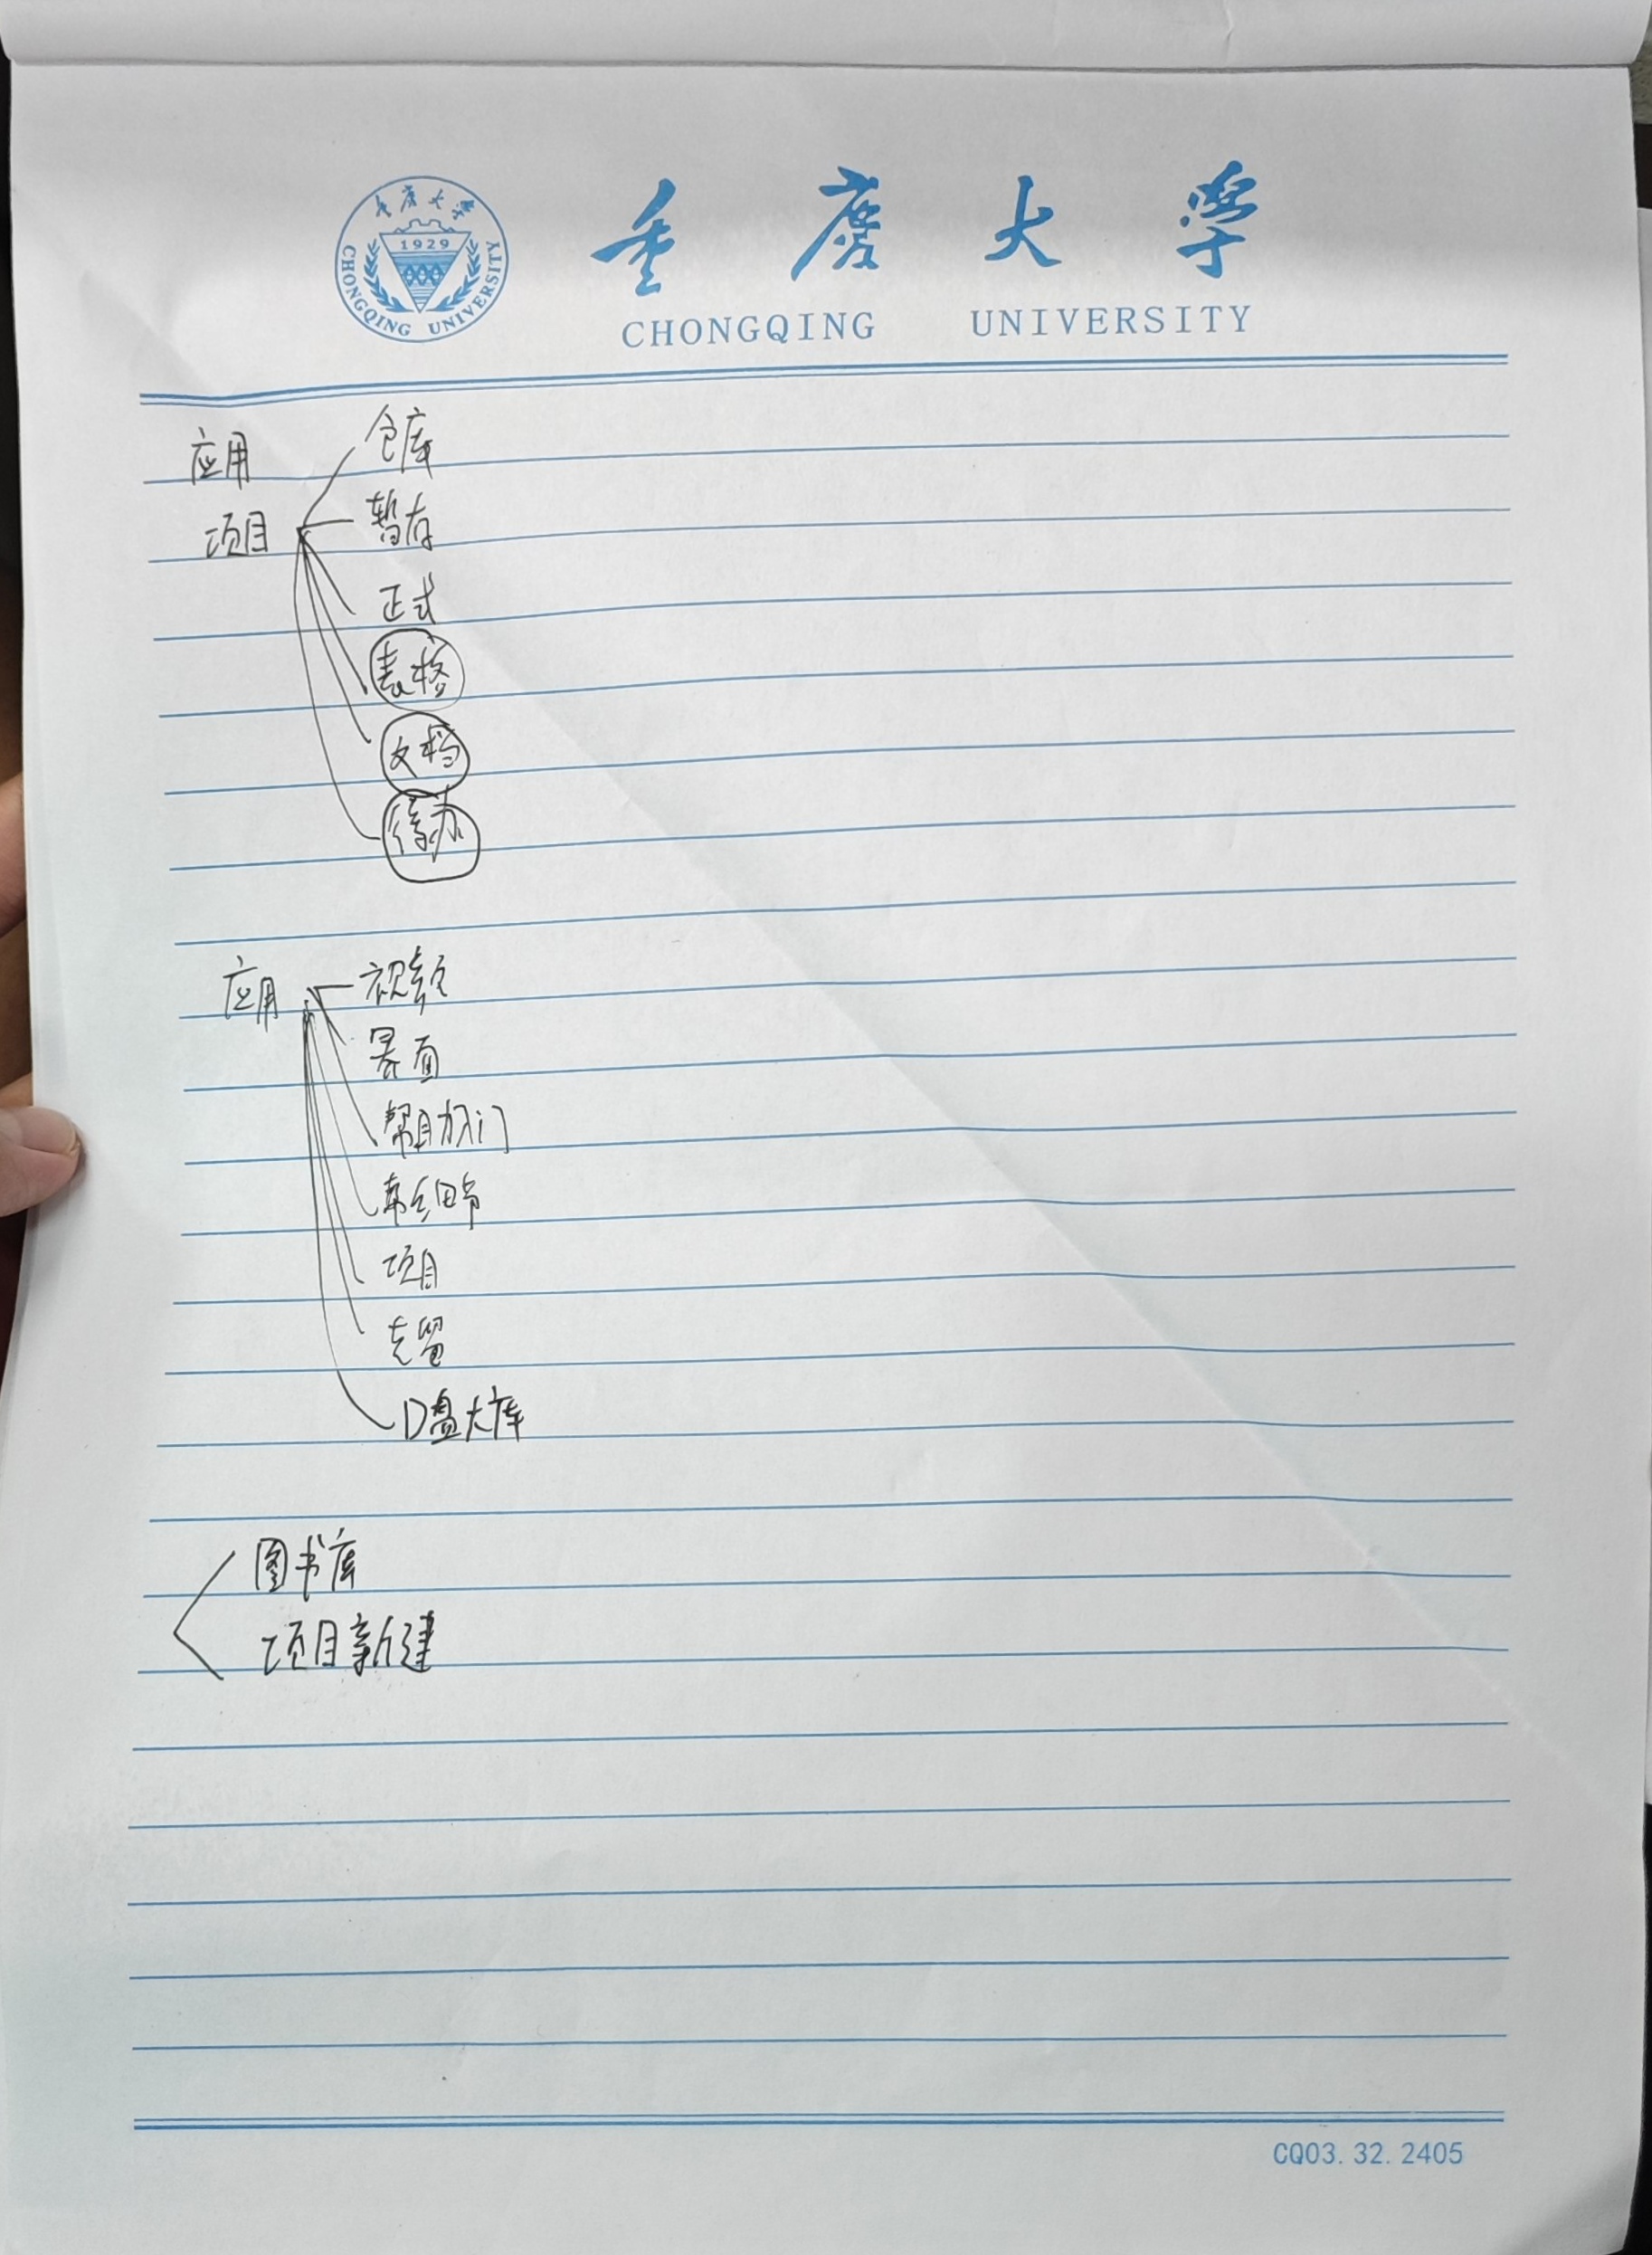 重庆大学
1929
CHONGQING UNIVERSITY
重庆大学
CHONGQING UNIVERSITY
应用
仓库
项目
暂存
正式
表格
文档
待办
应用
视频
界面
帮助入门
细节
项目
克留
D盘大库
图书库
项目新建
CQ03.32.2405